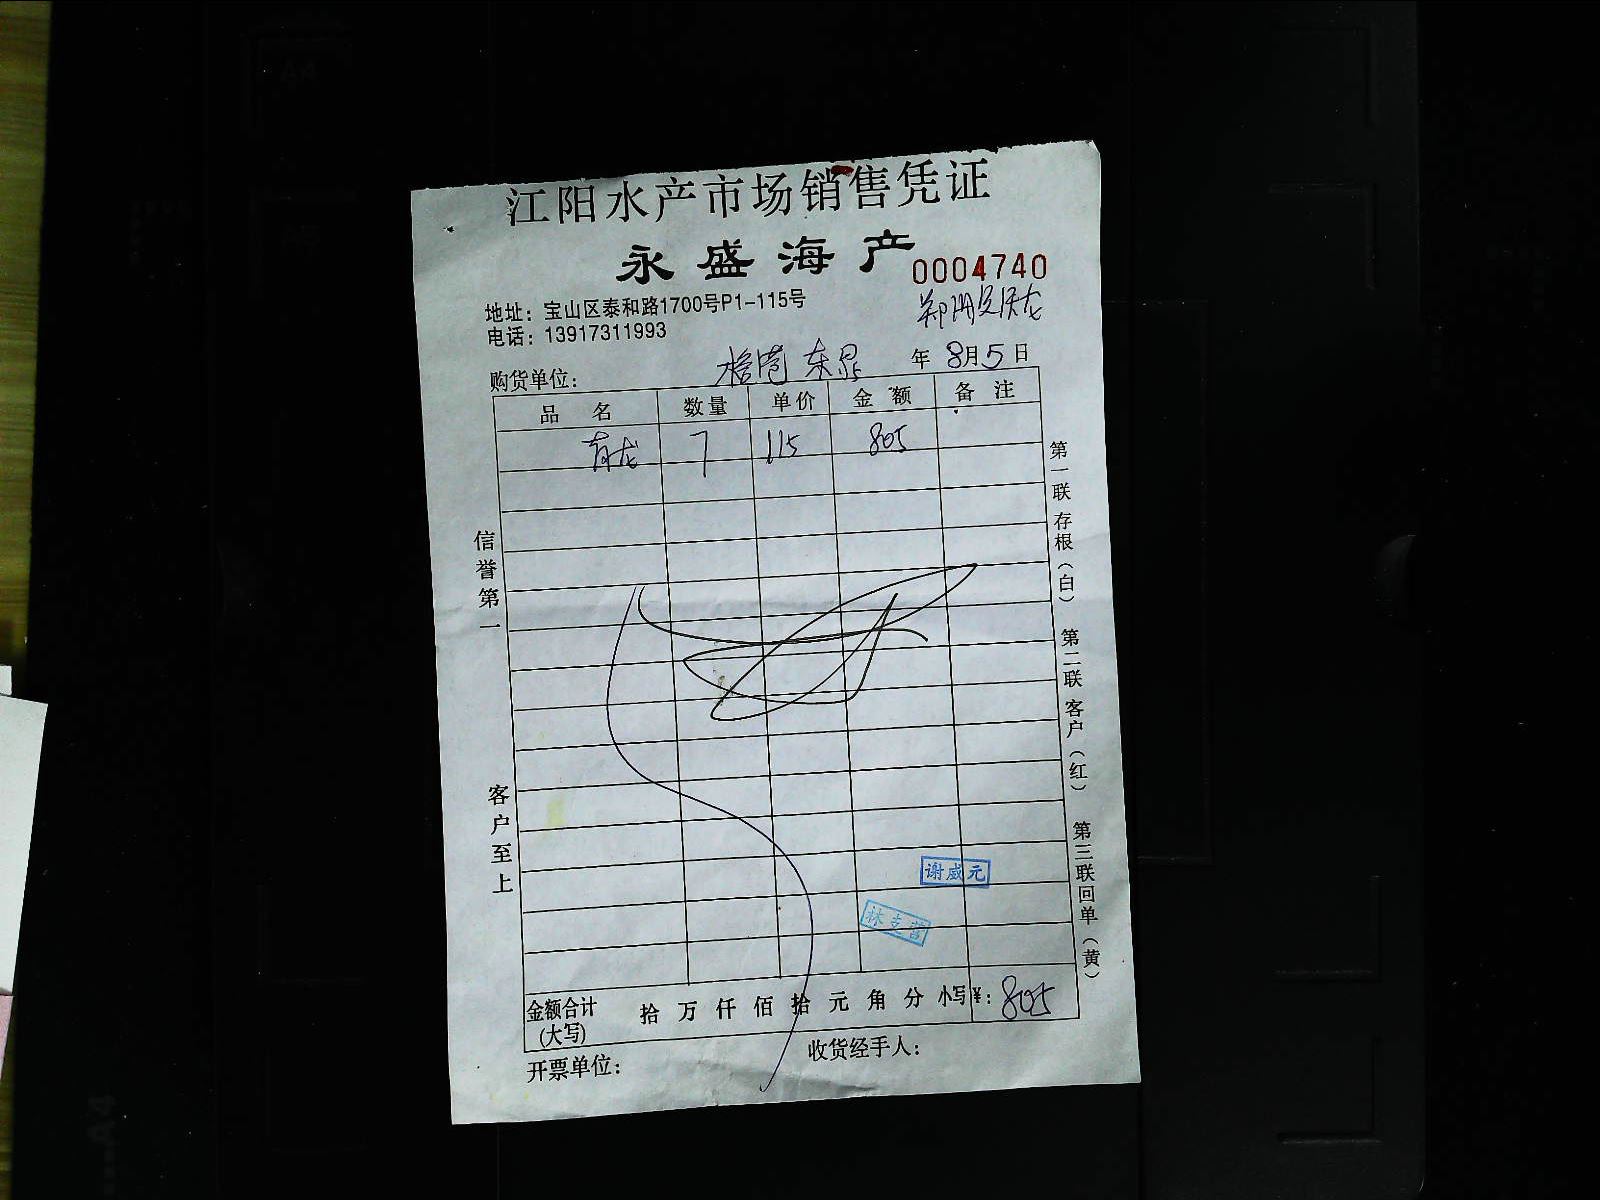 江阳水产市场销售凭证
永盛海产
0004740
地址：宝山区泰和路1700号P1-115号
电话：13917311993
购货单位： 年 8月5日
品名 数量 单价 金额 备注
青龙 7 115 805
信誉第一
客户至上
第一联 存根（白） 第二联 客户（红） 第三联回单（黄）
谢威元
林支营
金额合计（大写） 拾 万 仟 佰 拾 元 角 分 小写¥：805
开票单位： 收货经手人：
A4